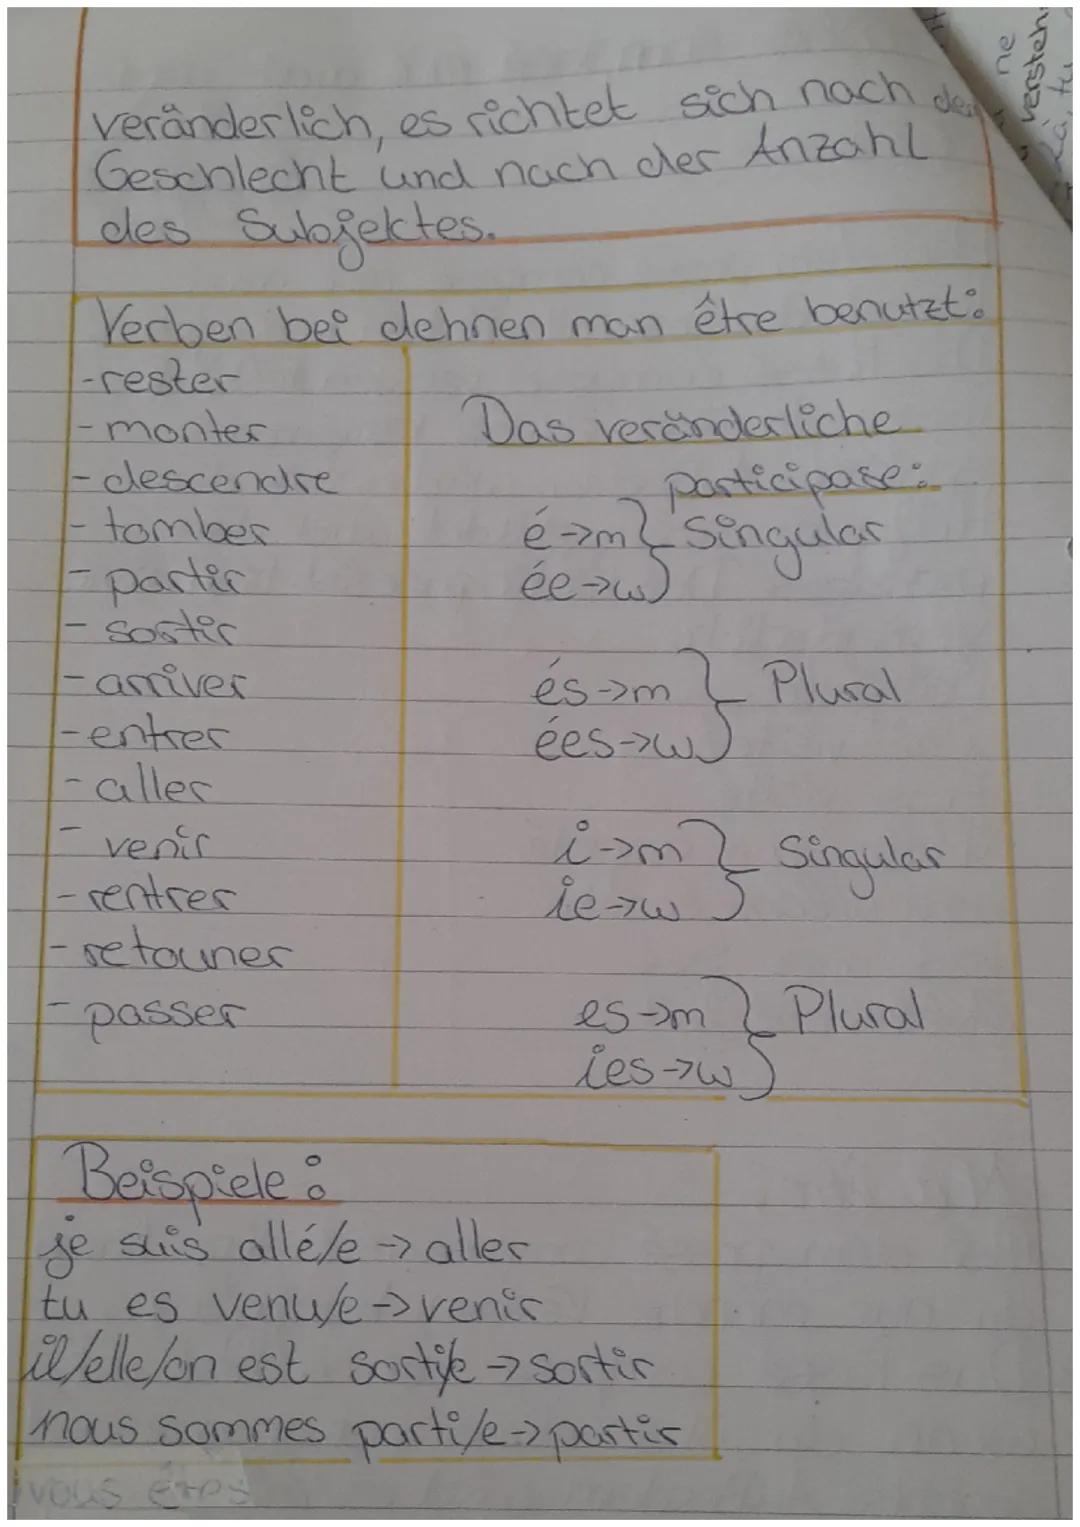 veränderlich, es richtet sich nach
Geschlecht und nach der Anzahl
des Subjektes.
Verben bei dehnen man être benutzt:
-rester
-monter
-descendre
-tomber
-partir
-sortir
-arriver
-entrer
-aller
-venir
-rentrer
-retouner
-passer
Das veränderliche
participase:
é->m } Singular
ée->w
és->m } Plural
ées->w
i->m } Singular
ie->w
es->m } Plural
ies->w
Beispiele:
je suis allé/e -> aller
tu es venu/e -> venir
il/elle/on est sorti/e -> sortir
nous sommes parti/e -> partir
vous êtes
ne
versteh
là, tu